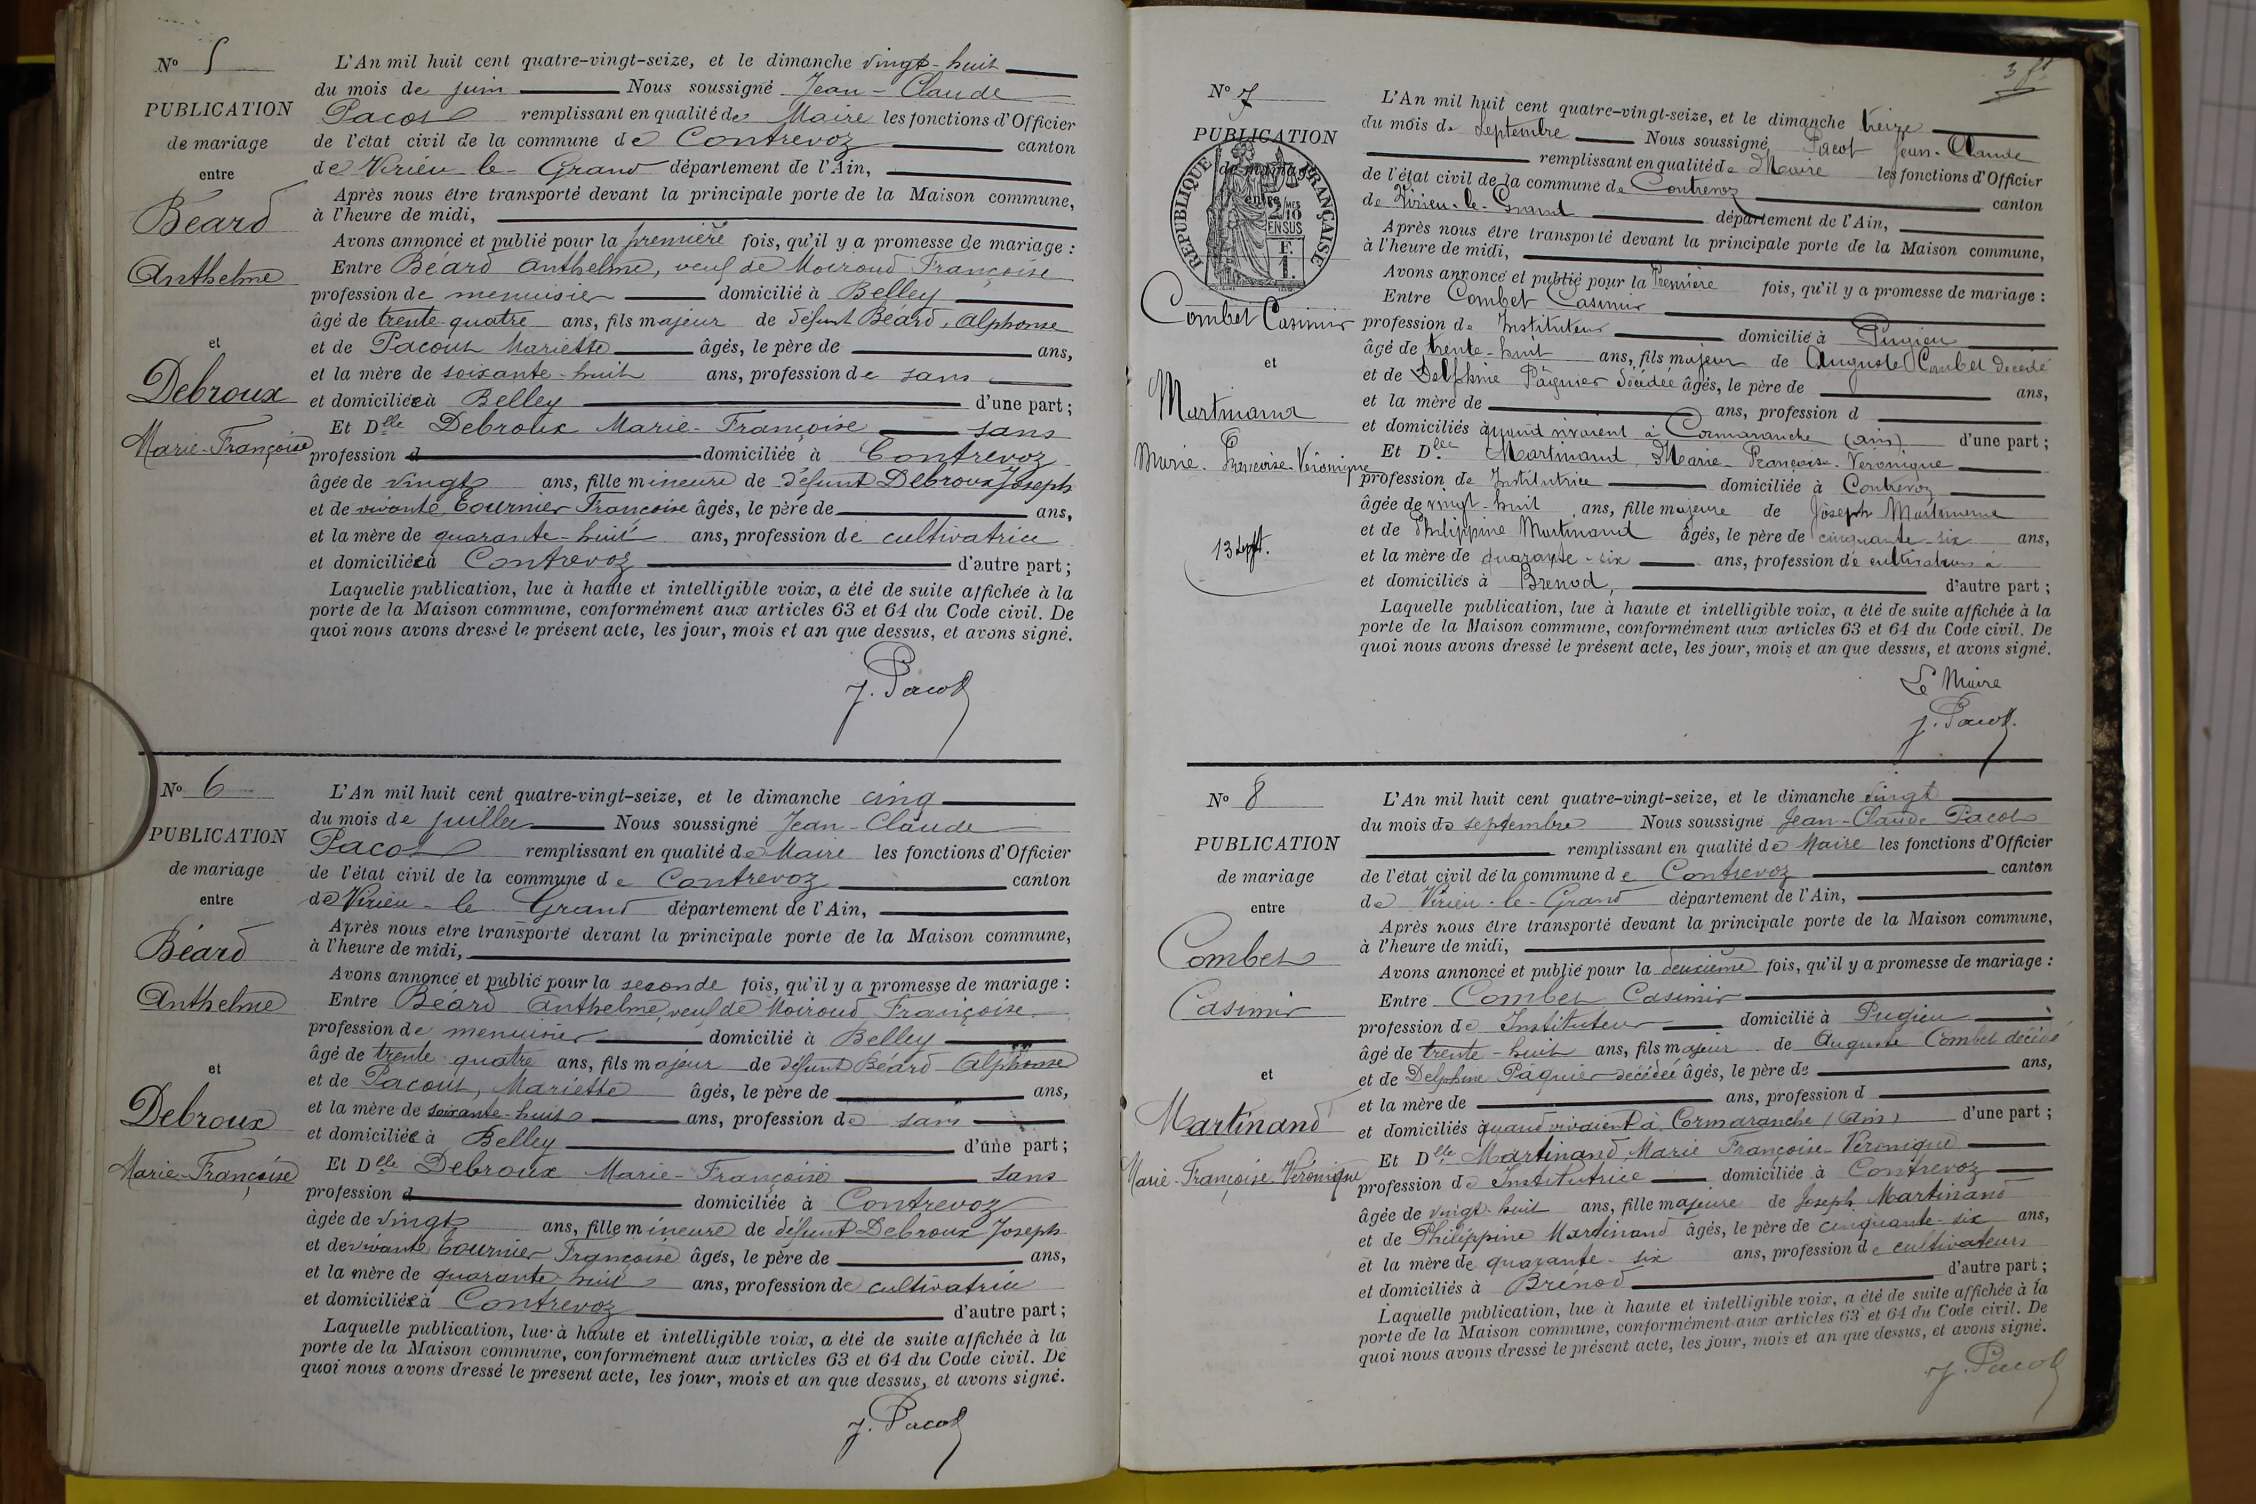 Nº 5
PUBLICATION
de mariage
entre
Béard
Anthelme
et
Debroux
Marie-Françoise
L'An mil huit cent quatre-vingt-seize, et le dimanche vingt-huit
du mois de juin Nous soussigné Jean-Claude
Pacot remplissant en qualité de Maire les fonctions d'Officier
de l'état civil de la commune de Contrevoz canton
de Virieu-le-Grand département de l'Ain,
Après nous être transporté devant la principale porte de la Maison commune,
à l'heure de midi,
Avons annoncé et publié pour la première fois, qu'il y a promesse de mariage :
Entre Béard Anthelme, veuf de Moiroud Françoise
profession de menuisier domicilié à Belley
âgé de trente-quatre ans, fils majeur de défunt Béard, Alphonse
et de Pacout Mariette âgés, le père de ans,
et la mère de soixante-huit ans, profession de sans
et domiciliée à Belley d'une part ;
Et Dlle Debroux Marie-Françoise sans
profession d domiciliée à Contrevoz
âgée de vingt ans, fille mineure de défunt Debroux Joseph
et de vivante Tournier Françoise âgés, le père de ans,
et la mère de quarante-huit ans, profession de cultivatrice
et domiciliée à Contrevoz d'autre part ;
Laquelle publication, lue à haute et intelligible voix, a été de suite affichée à la
porte de la Maison commune, conformément aux articles 63 et 64 du Code civil. De
quoi nous avons dressé le présent acte, les jour, mois et an que dessus, et avons signé.
J. Pacot
Nº 6
PUBLICATION
de mariage
entre
Béard
Anthelme
et
Debroux
Marie-Françoise
L'An mil huit cent quatre-vingt-seize, et le dimanche cinq
du mois de juillet Nous soussigné Jean-Claude
Pacot remplissant en qualité de Maire les fonctions d'Officier
de l'état civil de la commune de Contrevoz canton
de Virieu-le Grand département de l'Ain,
Après nous être transporté devant la principale porte de la Maison commune,
à l'heure de midi,
Avons annoncé et publié pour la seconde fois, qu'il y a promesse de mariage :
Entre Béard Anthelme, veuf de Moiroud Françoise
profession de menuisier domicilié à Belley
âgé de trente quatre ans, fils majeur de défunt Béard Alphonse
et de Pacout, Mariette âgés, le père de ans,
et la mère de soixante-huit ans, profession de sans
et domiciliée à Belley d'une part ;
Et Dlle Debroux Marie-Françoise sans
profession d domiciliée à Contrevoz
âgée de vingt ans, fille mineure de défunt Debroux Joseph
et de vivante Tournier Françoise âgés, le père de ans,
et la mère de quarante huit ans, profession de cultivatrice
et domiciliée à Contrevoz d'autre part ;
Laquelle publication, lue à haute et intelligible voix, a été de suite affichée à la
porte de la Maison commune, conformément aux articles 63 et 64 du Code civil. De
quoi nous avons dressé le present acte, les jour, mois et an que dessus, et avons signé.
J. Pacot
3 ft
Nº 7
PUBLICATION
de mariage
entre
RÉPUBLIQUE FRANÇAISE
2/10 MES EN SUS
F. 1.
Combet Casimir
et
Martinand
Marie-Françoise-Véronique
13 Sept.
L'An mil huit cent quatre-vingt-seize, et le dimanche treize
du mois de Septembre Nous soussigné Pacot Jean-Claude
remplissant en qualité de Maire les fonctions d'Officier
de l'état civil de la commune de Contrevoz canton
de Virieu-le-Grand département de l'Ain,
Après nous être transporté devant la principale porte de la Maison commune,
à l'heure de midi,
Avons annoncé et publié pour la Première fois, qu'il y a promesse de mariage :
Entre Combet Casimir
profession de Instituteur domicilié à Pugieu
âgé de trente-huit ans, fils majeur de Auguste Combet décédé
et de Delphine Pâquier décédée âgés, le père de ans,
et la mère de ans, profession d
et domiciliés à quand vivaient à Cormaranche (Ain) d'une part ;
Et Dlle Martinand Marie-Françoise-Véronique
profession de Institutrice domiciliée à Contrevoz
âgée de vingt-huit ans, fille majeure de Joseph Martinand
et de Philippine Martinand âgés, le père de cinquante-six ans,
et la mère de quarante-six ans, profession de cultivateurs à
et domiciliés à Brenod, d'autre part ;
Laquelle publication, lue à haute et intelligible voix, a été de suite affichée à la
porte de la Maison commune, conformément aux articles 63 et 64 du Code civil. De
quoi nous avons dressé le présent acte, les jour, mois et an que dessus, et avons signé.
Le Maire
J. Pacot
Nº 8
PUBLICATION
de mariage
entre
Combet
Casimir
et
Martinand
Marie-Françoise-Véronique
L'An mil huit cent quatre-vingt-seize, et le dimanche vingt
du mois de septembre Nous soussigné Jean-Claude Pacot
remplissant en qualité de Maire les fonctions d'Officier
de l'état civil de la commune de Contrevoz canton
de Virieu-le-Grand département de l'Ain,
Après nous être transporté devant la principale porte de la Maison commune,
à l'heure de midi,
Avons annoncé et publié pour la deuxième fois, qu'il y a promesse de mariage :
Entre Combet Casimir
profession de Instituteur domicilié à Pugieu
âgé de trente-huit ans, fils majeur de Auguste Combet décédé
et de Delphine Pâquier décédée âgés, le père de ans,
et la mère de ans, profession d
et domiciliés à quand vivaient à Cormaranche (Ain) d'une part ;
Et Dlle Martinand, Marie Françoise-Véronique
profession de Institutrice domiciliée à Contrevoz
âgée de vingt-huit ans, fille majeure de Joseph Martinand
et de Philippine Martinand âgés, le père de cinquante-six ans,
et la mère de quarante-six ans, profession de cultivateurs
et domiciliés à Brénod d'autre part ;
Laquelle publication, lue à haute et intelligible voix, a été de suite affichée à la
porte de la Maison commune, conformément aux articles 63 et 64 du Code civil. De
quoi nous avons dressé le présent acte, les jour, mois et an que dessus, et avons signé.
J. Pacot